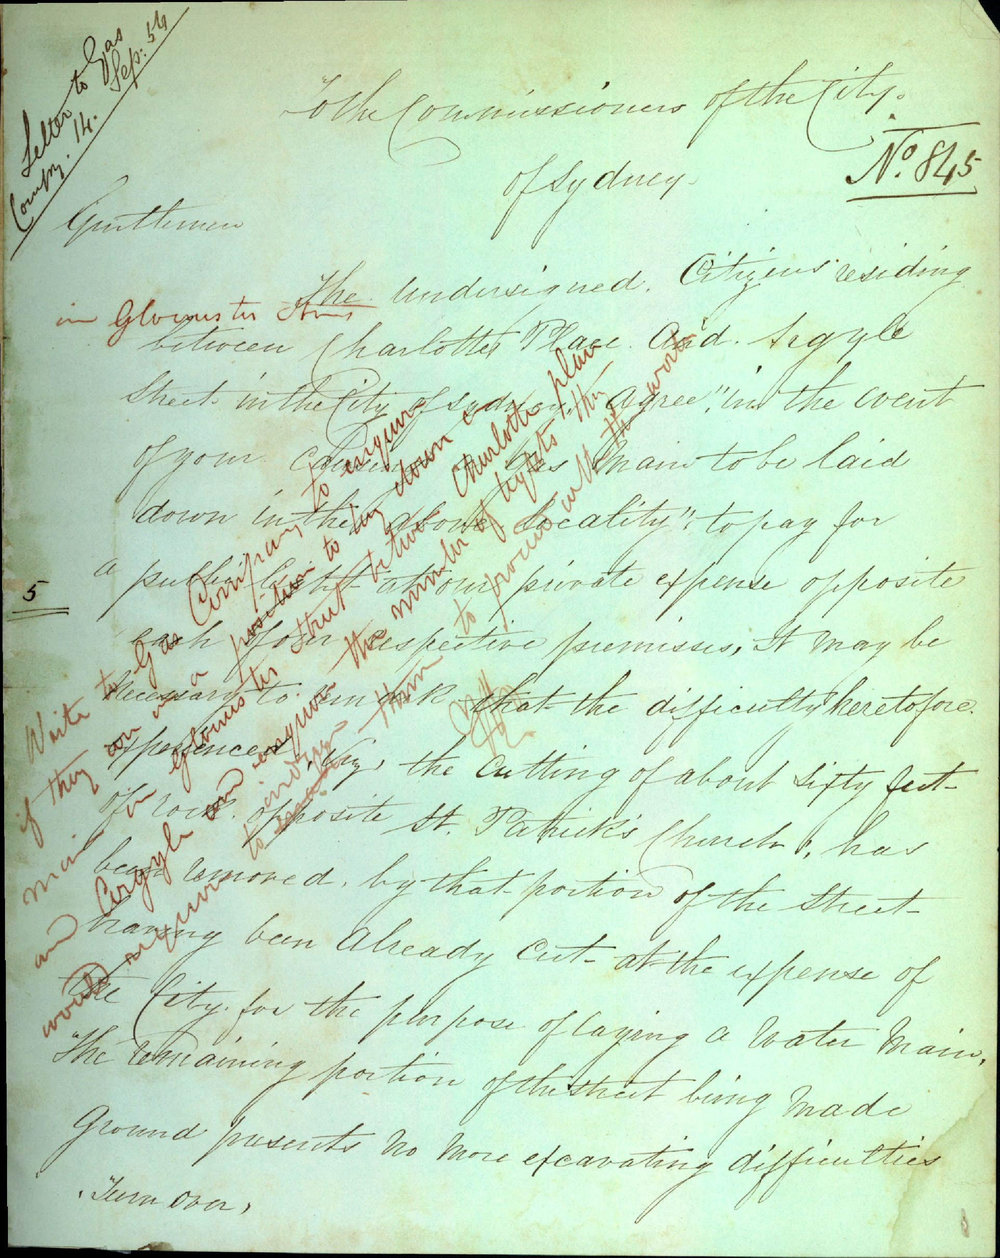 Letter to Gas
Compy. 14. Sep: 54
To the Commissioners of the City.
of Sydney.
No. 845
Gentlemen
The Undersigned. Citizens residing
in Gloucester Street
between Charlotte Place. And. Argyle
Street in the City of Sydney, agree, in the event
of your Gas Main to be laid
down in the above Locality, to pay for
a public light at our private expense opposite
5
each of our respective premises, It may be
necessary to remark that the difficulty heretofore
experienced, Viz, the Cutting of about Sixty feet
of rock opposite St. Patrick's Church, has
been removed, by that portion of the Street
having been Already Cut at the expense of
the City. for the purpose of laying a Water Main,
The remaining portion of the street being Made
Ground presents No More excavating difficulties
Turn Over,
Write to Gas Company to enquire
if they are in a position to lay down a
main in Gloucester Street between Charlotte place
and Argyle and enquire the number of lights they
would require to indg them to proceed with the work